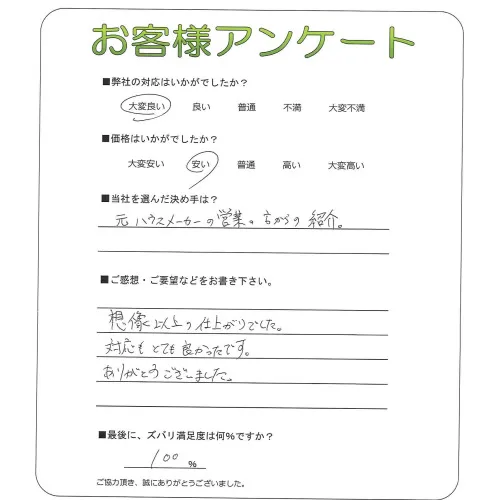 お客様アンケート
■弊社の対応はいかがでしたか？
大変良い 良い 普通 不満 大変不満
■価格はいかがでしたか？
大変安い 安い 普通 高い 大変高い
■当社を選んだ決め手は？
元ハウスメーカーの営業の方からの紹介。
■ご感想・ご要望などをお書き下さい。
想像以上の仕上がりでした。
対応もとても良かったです。
ありがとうございました。
■最後に、ズバリ満足度は何%ですか？
100 %
ご協力頂き、誠にありがとうございました。